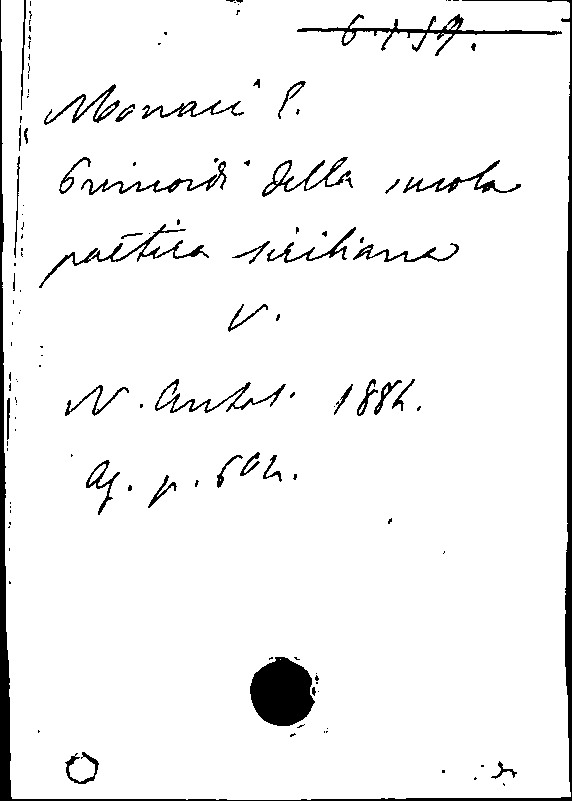 6.1.59.
Monaci E.
Primordi della scuola
poetica siciliana
V.
N. Antol. 1884.
Ag. p. 604.